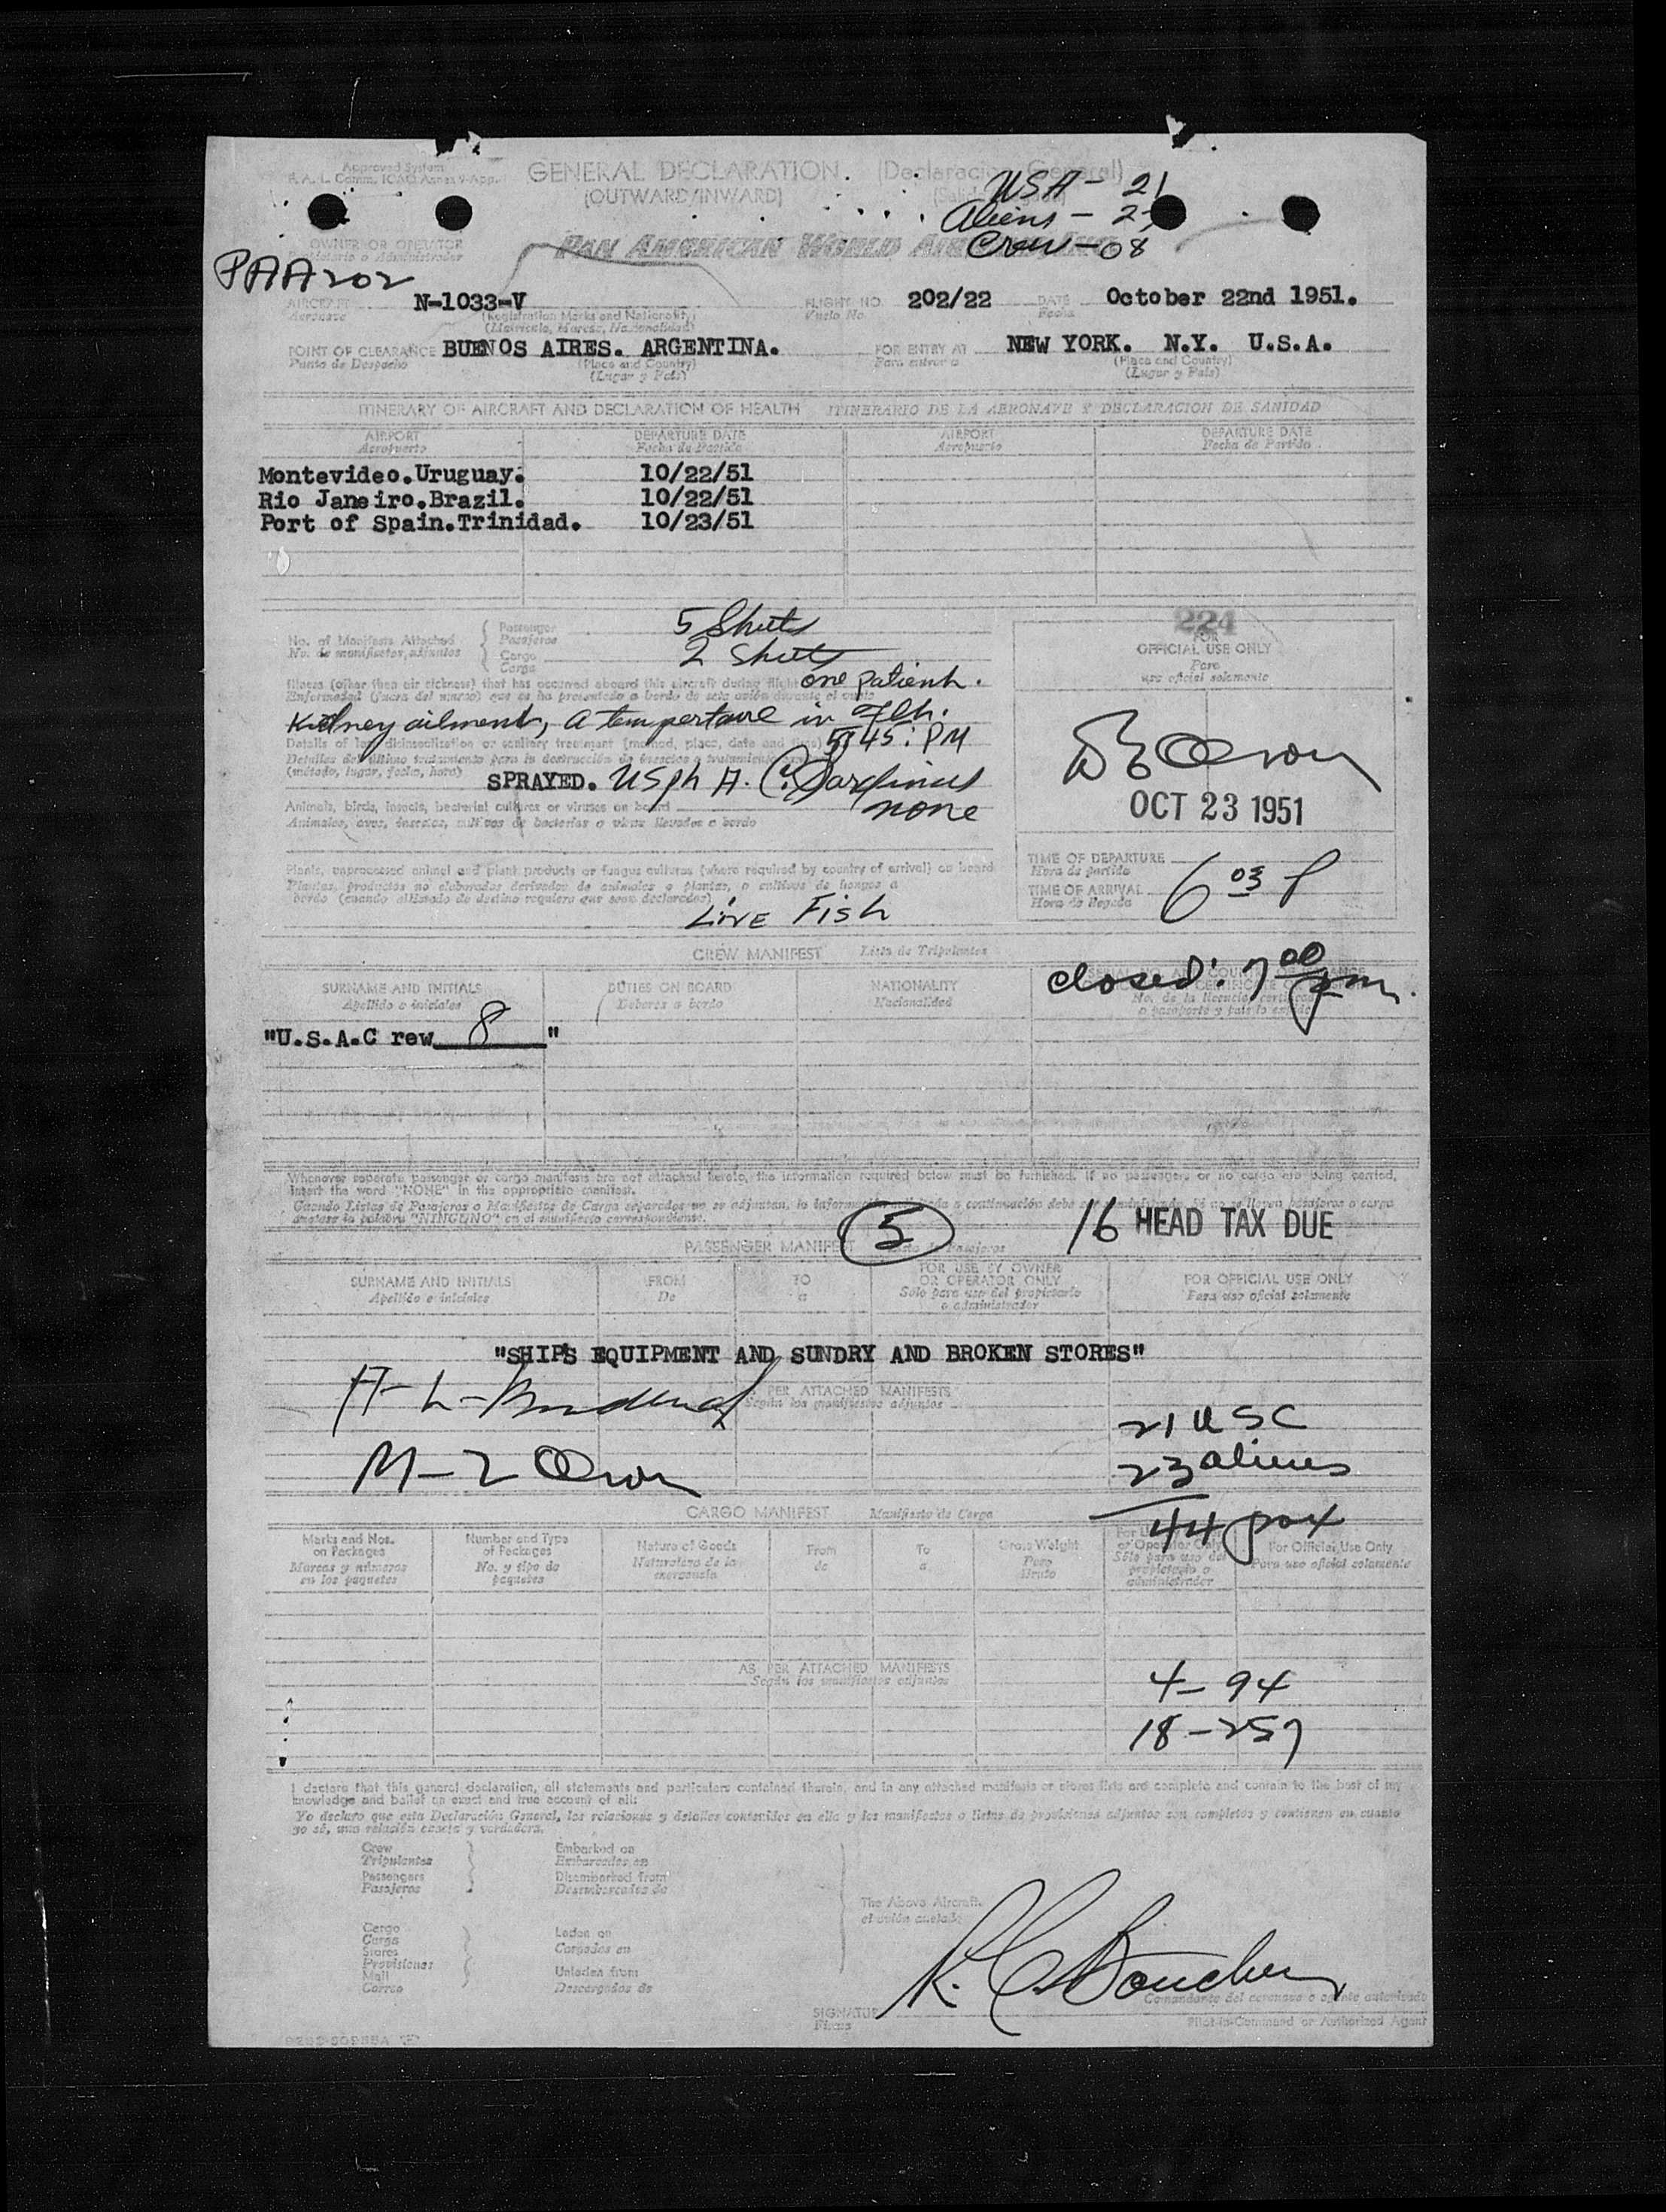 Approved System
F.A.L. Comm. ICAO Annex 9-App.
GENERAL DECLARATION. (Declaracion General)
(OUTWARD/INWARD)
USA - 21
Aliens - 23
Crew - 08
OWNER OR OPERATOR
PAN AMERICAN WORLD
PAA 202
AIRCRAFT N-1033-V FLIGHT NO. 202/22 DATE October 22nd 1951.
Aeronave (Registration Marks and Nationality) Vuelo No. Fecha
POINT OF CLEARANCE BUENOS AIRES. ARGENTINA. FOR ENTRY AT NEW YORK. N.Y. U.S.A.
Punto de Despacho (Place and Country) Para entrar a (Place and Country)
(Lugar y País) (Lugar y País)
ITINERARY OF AIRCRAFT AND DECLARATION OF HEALTH ITINERARIO DE LA AERONAVE Y DECLARACION DE SANIDAD
AIRPORT DEPARTURE DATE AIRPORT DEPARTURE DATE
Aeropuerto Fecha de Partida Aeropuerto Fecha de Partida
Montevideo.Uruguay. 10/22/51
Rio Janeiro.Brazil. 10/22/51
Port of Spain.Trinidad. 10/23/51
No. of Manifests Attached
No. de manifiestos, adjuntos
Passenger
Pasajeros 5 Sheets
Cargo 2 Sheets
Carga
224
FOR
OFFICIAL USE ONLY
Para
uso oficial solamente
Illness (other than air sickness) that has occurred aboard this aircraft during flight one patient.
Kidney ailment, a
5:45: PM
SPRAYED. USPH
Animals, birds, insects, bacterial cultures or viruses on board none
Animales, aves, insectos, cultivos de bacterias o virus llevados a bordo
OCT 23 1951
TIME OF DEPARTURE
Hora de partida
TIME OF ARRIVAL 6 03 P
Hora de llegada
Plants, unprocessed animal and plant products or fungus cultures (where required by country of arrival) on board
Plantas, productos no elaborados derivados de animales o plantas, o cultivos de hongos a
bordo (cuando el Estado de destino requiera que sean declarados)
Live Fish
CREW MANIFEST Lista de Tripulantes
closed: 7 00 pm.
SURNAME AND INITIALS DUTIES ON BOARD NATIONALITY
Apellido e iniciales Deberes a bordo Nacionalidad
"U.S.A.C rew 8 "
Whenever separate passenger or cargo manifests are not attached hereto, the information required below must be furnished. If no passengers or no cargo are being carried,
insert the word "NONE" in the appropriate manifest.
5
16 HEAD TAX DUE
PASSENGER MANIFEST
SURNAME AND INITIALS FROM TO FOR USE BY OWNER OR OPERATOR ONLY FOR OFFICIAL USE ONLY
Apellido e iniciales De a Sólo para uso del propietario o administrador Para uso oficial solamente
"SHIP'S EQUIPMENT AND SUNDRY AND BROKEN STORES"
PER ATTACHED MANIFESTS
Según los manifiestos adjuntos
21 USC
23 aliens
44 pax
CARGO MANIFEST Manifiesto de Carga
Marks and Nos. on Packages Number and Type of Packages Nature of Goods From To Gross Weight For Official Use Only
Marcas y números en los paquetes No. y tipo de paquetes Naturaleza de la mercancía de a Peso Bruto Para uso oficial solamente
AS PER ATTACHED MANIFESTS
Según los manifiestos adjuntos
4 - 94
18 - 257
I declare that this general declaration, all statements and particulars contained therein, and in any attached manifests or stores lists are complete and contain to the best of my
knowledge and belief an exact and true account of all:
Yo declaro que esta Declaración General, las relaciones y detalles contenidos en ella y los manifiestos o listas de provisiones adjuntos son completos y contienen en cuanto
yo sé, una relación exacta y verdadera.
Crew Embarked on
Tripulantes Embarcados en
Passengers Disembarked from
Pasajeros Desembarcados de
The Above Aircraft.
Cargo Laden on
Carga Cargados en
Stores
Provisiones
Mail Unladen from
Correo Descargados de
K. C. Boucher
SIGNATURE
Firma
Comandante del aeronave o agente autorizado
Pilot-in-Command or Authorized Agent